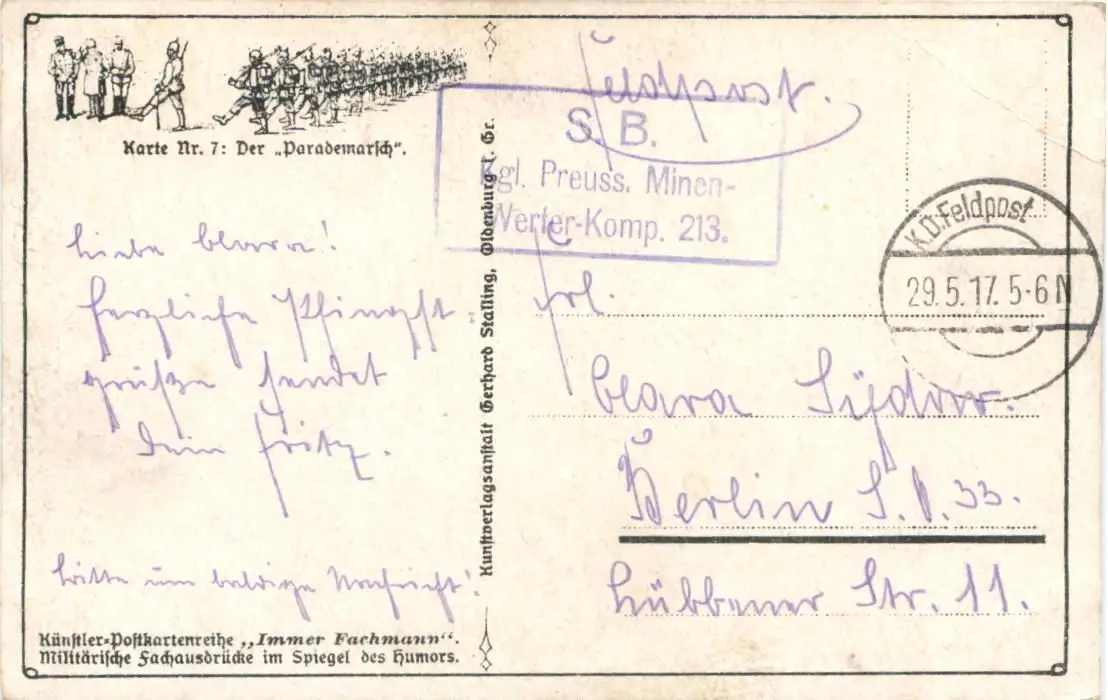 Karte Nr. 7: Der „Parademarsch“.
Liebe Clara!
Herzliche Pfingst
grüße sendet
Dein Fritz.
Bitte um baldige Nachricht!
Künstler-Postkartenreihe „Immer Fachmann“.
Militärische Fachausdrücke im Spiegel des Humors.
Kunstverlagsanstalt Gerhard Stalling, Oldenburg i. Gr.
Feldpost.
S. B.
Kgl. Preuss. Minen-
Werfer-Komp. 213.
K.D. Feldpost
29.5.17. 5-6 N
Frl.
Clara Sydow.
Berlin S.O. 33.
Lübbener Str. 11.